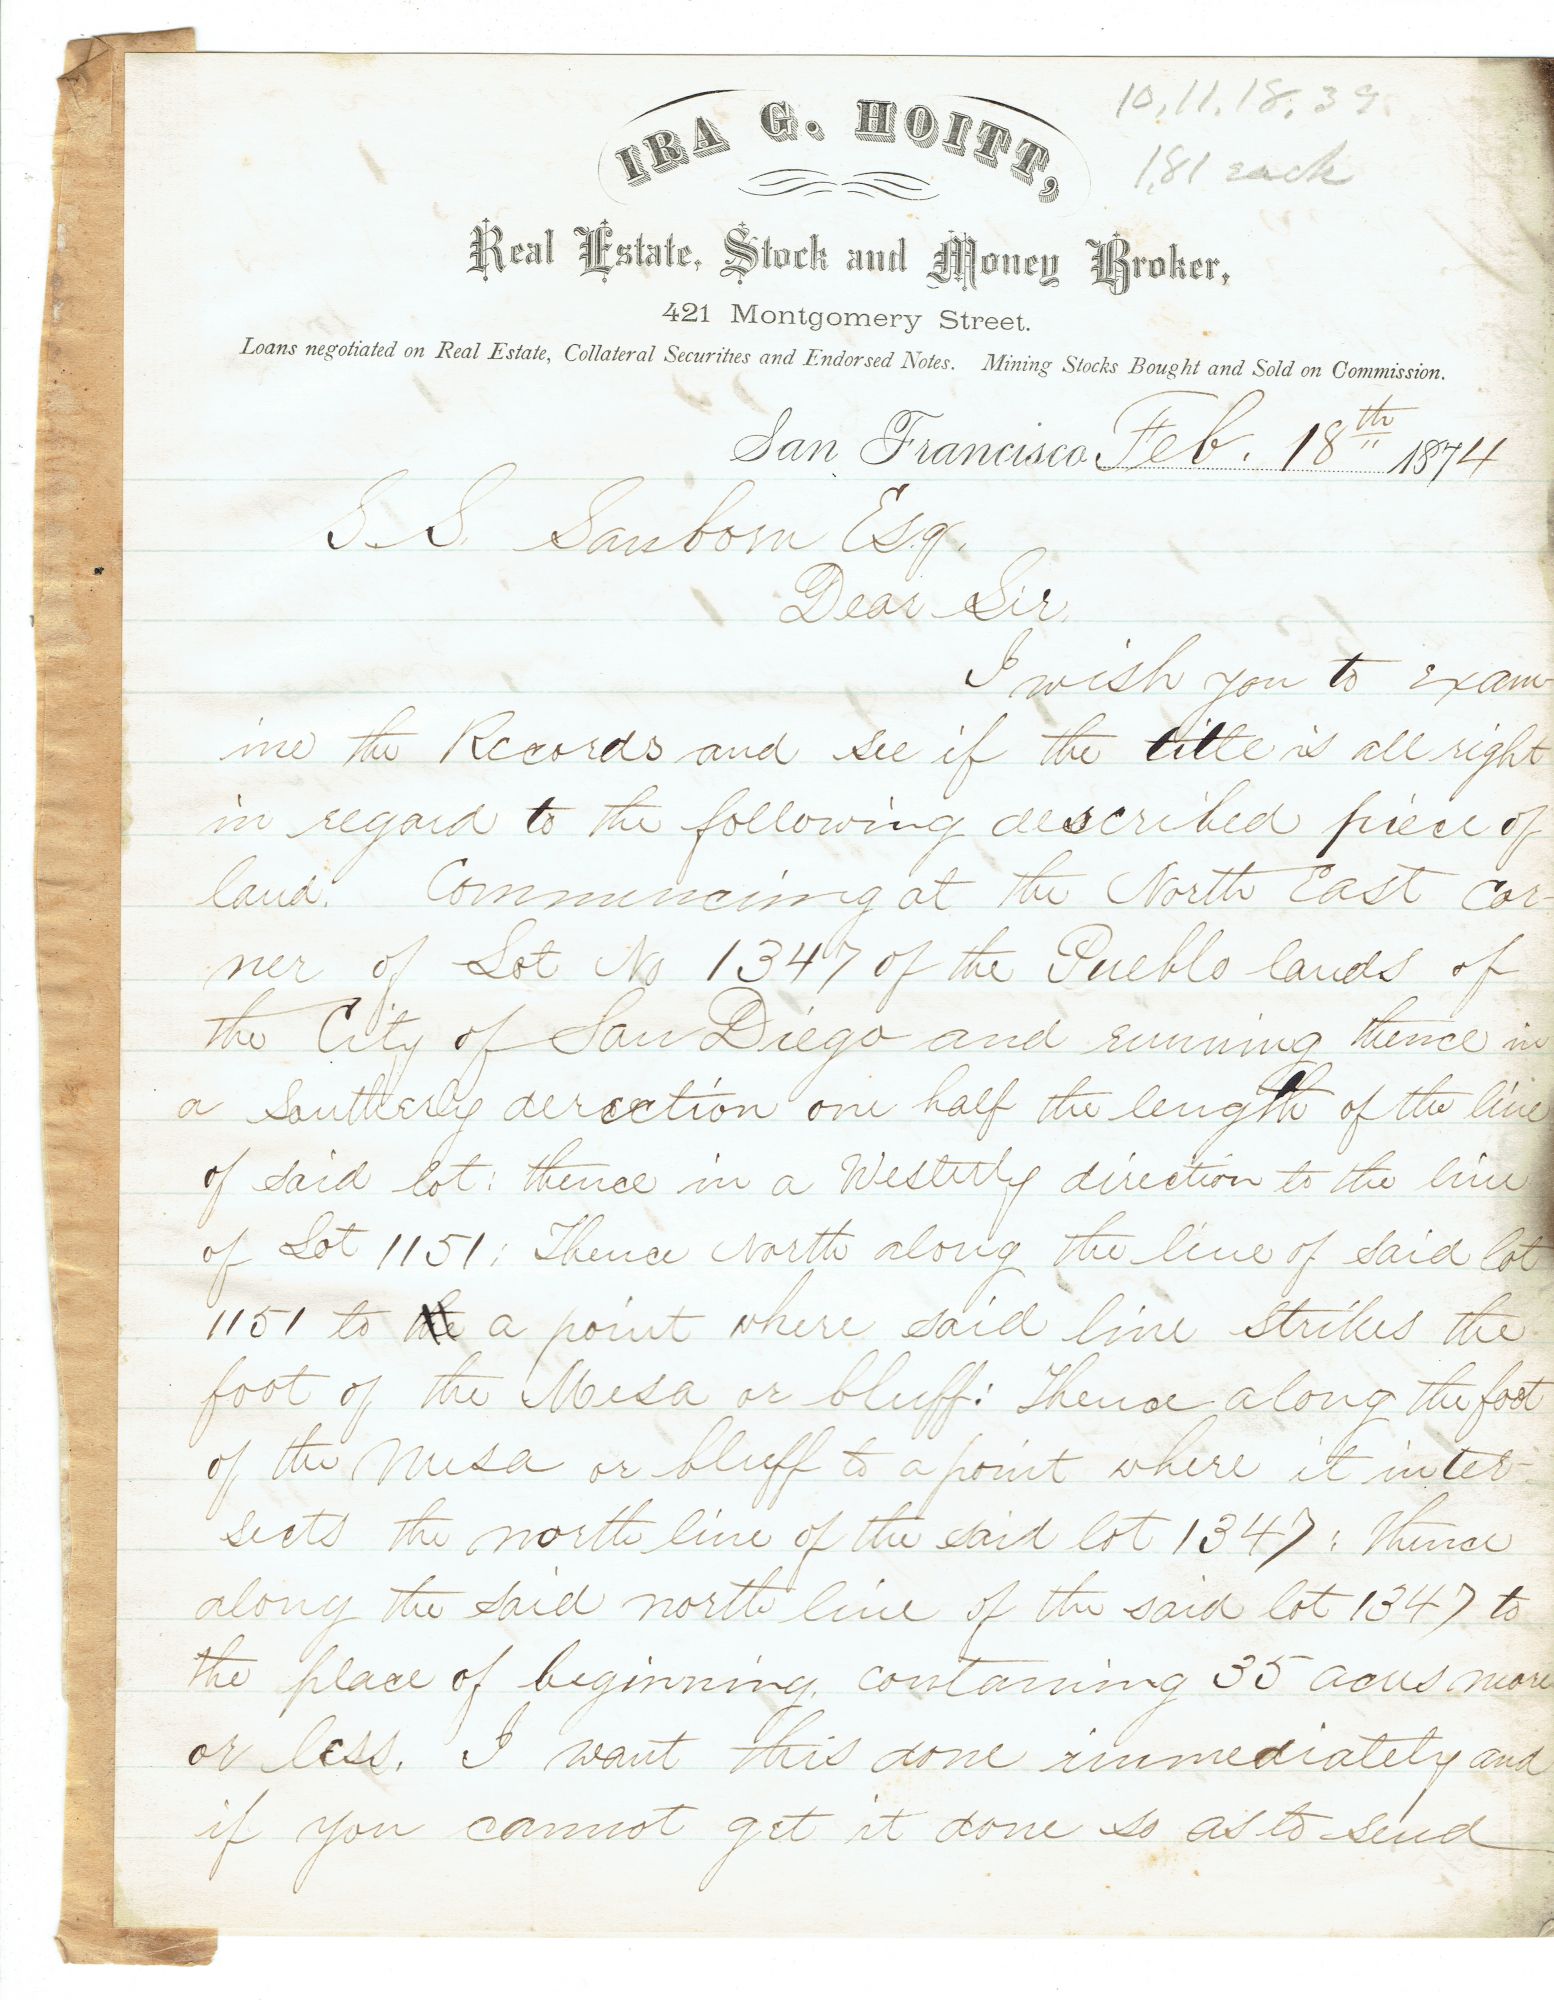 10, 11, 18, 39.
1,81 each
IRA G. HOITT,
Real Estate, Stock and Money Broker,
421 Montgomery Street.
Loans negotiated on Real Estate, Collateral Securities and Endorsed Notes. Mining Stocks Bought and Sold on Commission.
San Francisco Feb. 18th 1874
S. S. Sanborn Esq.
Dear Sir,
I wish you to exam-
ine the Records and see if the title is all right
in regard to the following described piece of
land. Commencing at the North East cor-
ner of Lot No 1347 of the Pueblo lands of
the City of San Diego and running thence in
a Southerly derection one half the length of the line
of said lot: thence in a Westerly direction to the line
of Lot 1151; Thence North along the line of said lot
1151 to the a point where said line strikes the
foot of the Mesa or bluff: Thence along the foot
of the Mesa or bluff to a point where it inter-
sects the north line of the said lot 1347: thence
along the said north line of the said lot 1347 to
the place of beginning, containing 35 acres more
or less. I want this done immediately and
if you cannot get it done so as to send